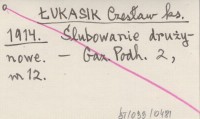 ŁUKASIK Czesław ks.
1914. Ślubowanie druży-
nowe. — Gaz. Podh. 2,
nr 12.